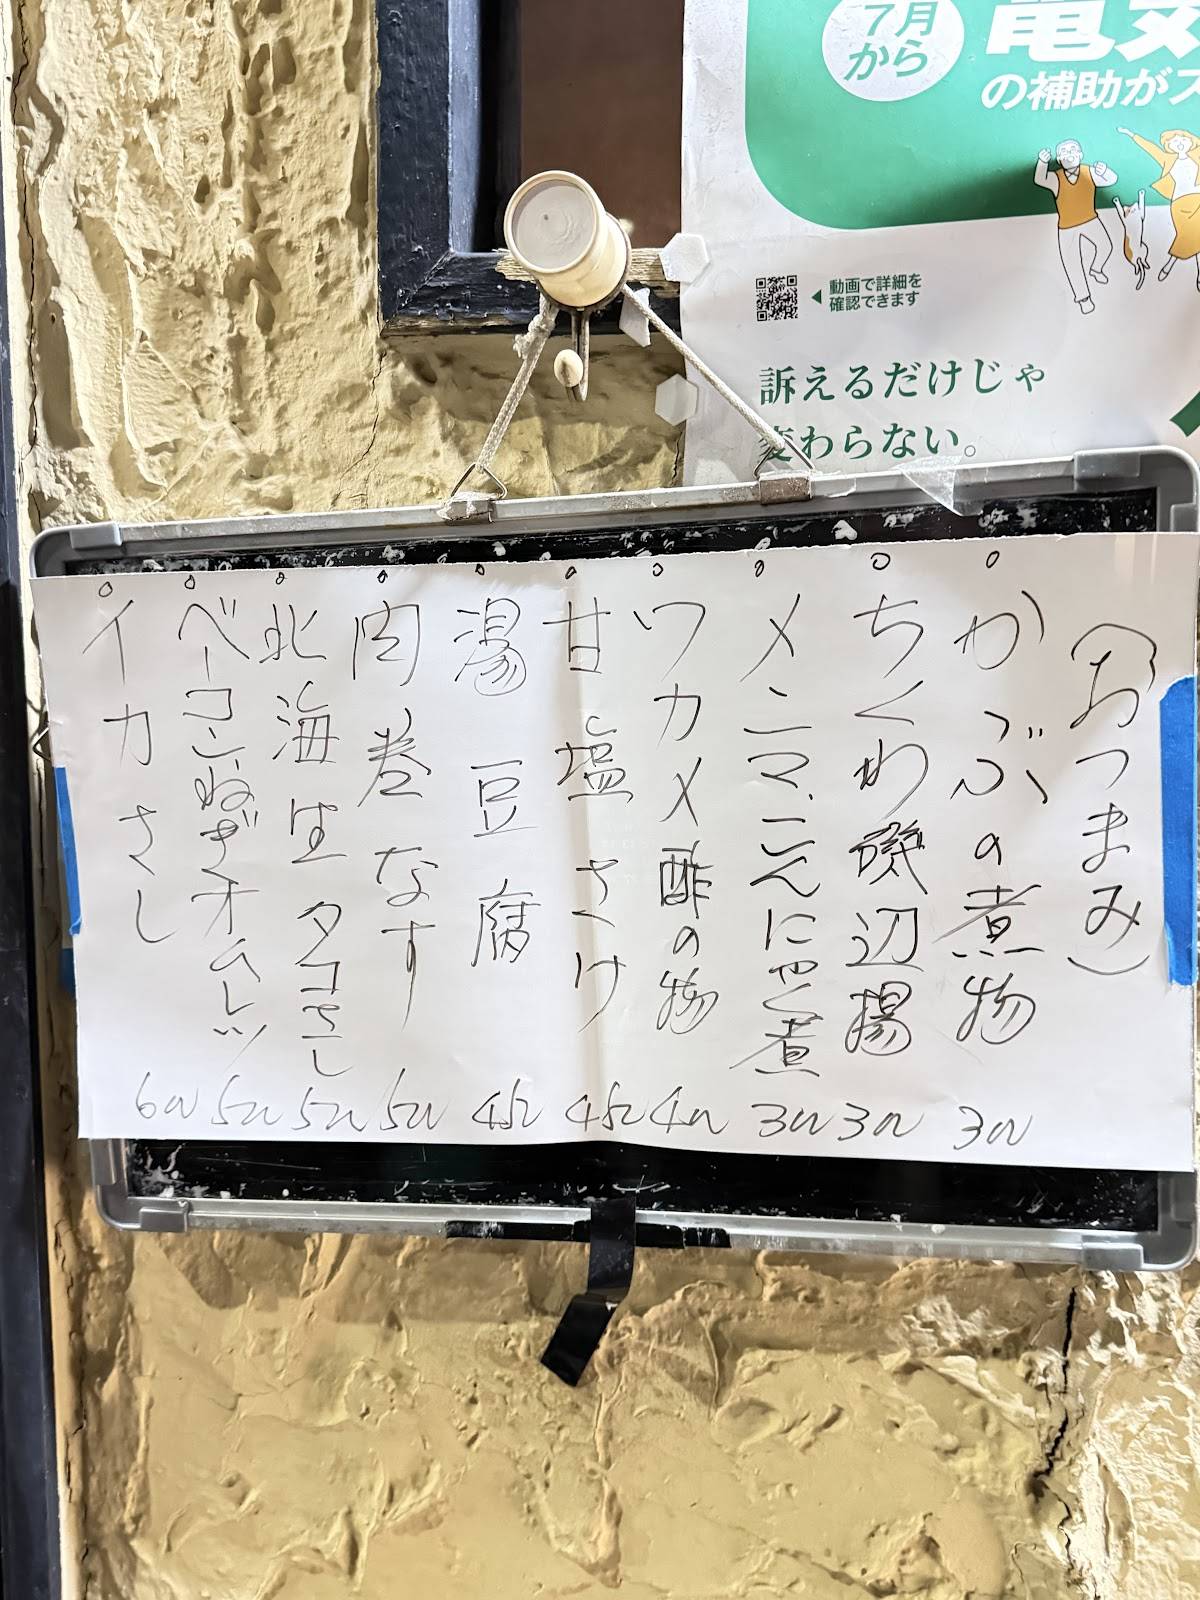 7月
から
の補助がス
動画で詳細を
確認できます
訴えるだけじゃ
変わらない。
(おつまみ)
かぶの煮物
ちくわ磯辺揚
メンマ、こんにゃく煮
ワカメ酢の物
甘塩さけ
湯豆腐
肉巻なす
北海生タコさし
ベーコン、ねぎオムレツ
イカさし